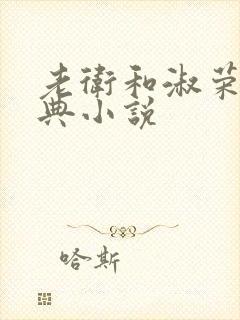 老衛和淑荣
典小説
哈斯